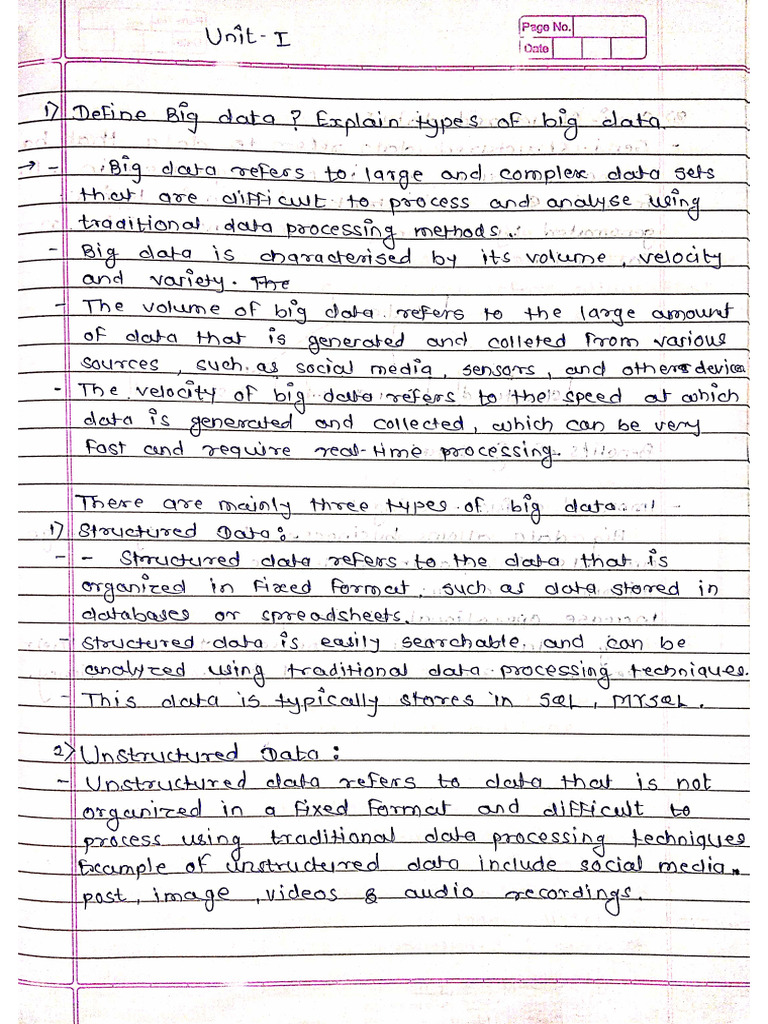 Unit-I
Page No.
Date
1) Define Big data? Explain types of big data.
→ - Big data refers to large and complex data sets
that are difficult to process and analyse using
traditional data processing methods.
- Big data is characterised by its volume, velocity
and variety. The
- The volume of big data refers to the large amount
of data that is generated and colleted from various
sources, such as social media, sensors, and others device
- The velocity of big data refers to the speed at which
data is generated and collected, which can be very
fast and require real-time processing.
There are mainly three types of big data.
1) Structured Data:
- - Structured data refers to the data that is
organized in fixed format, such as data stored in
databases or spreadsheets.
- Structured data is easily searchable and can be
analyzed using traditional data processing techniques.
- This data is typically stores in SQL, MYSQL.
2) Unstructured Data:
- Unstructured data refers to data that is not
organized in a fixed format and difficult to
process using traditional data processing techniques
Example of unstructured data include social media
post, image, videos & audio recordings.